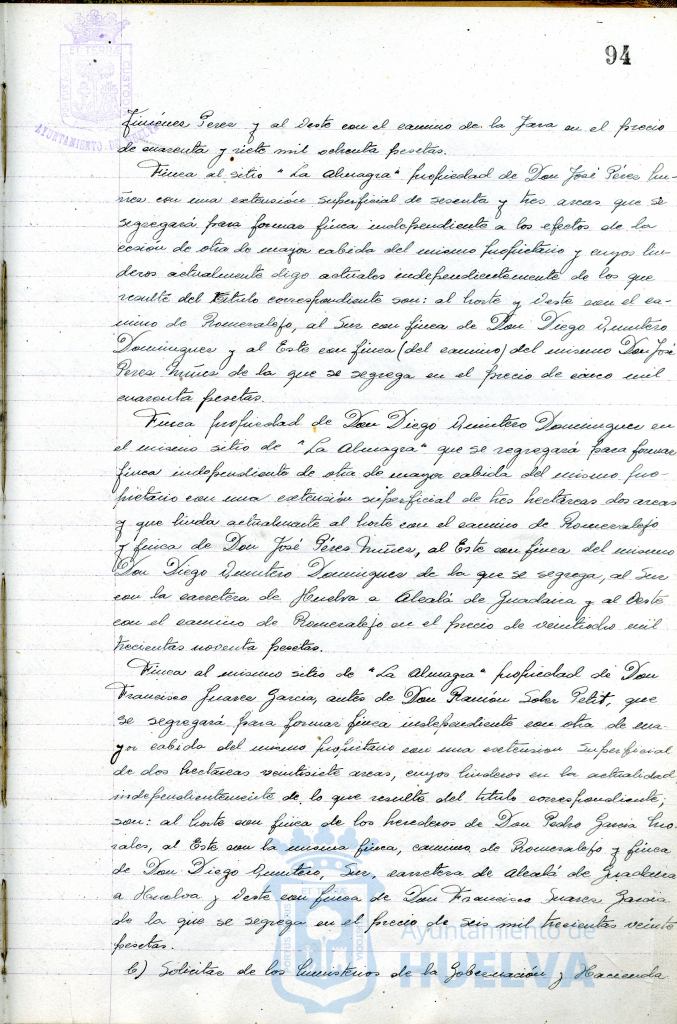 94
AYUNTAMIENTO DE HUELVA
Jiménez Perez y al Oeste con el camino de la Jara en el precio
de cuarenta y siete mil ochenta pesetas.
Finca al sitio "La Almagra" propiedad de Don José Pérez Nu-
ñez con una extensión superficial de sesenta y tres areas que se
segregará para formar finca independiente a los efectos de la
cesión de otra de mayor cabida del mismo propietario y cuyos lin-
deros actualmente digo actuales independientemente de los que
resulte del titulo correspondiente son: al Norte y Oeste con el ca-
mino de Romeralejo, al Sur con finca de Don Diego Quintero
Dominguez y al Este con finca (del camino) del mismo Don José
Perez Nuñez de la que se segrega en el precio de cinco mil
cuarenta pesetas.
Finca propiedad de Don Diego Quintero Dominguez en
el mismo sitio de "La Almagra" que se segregará para formar
finca independiente de otra de mayor cabida del mismo pro-
pietario con una extensión superficial de tres hectáreas dos areas
y que linda actualmente al Norte con el camino de Romeralejo
y finca de Don José Pérez Nuñez, al Este con finca del mismo
Don Diego Quintero Dominguez de la que se segrega, al Sur
con la carretera de Huelva a Alcalá de Guadaira y al Oeste
con el camino de Romeralejo en el precio de veintiocho mil
trecientas noventa pesetas.
Finca al mismo sitio de "La Almagra" propiedad de Don
Francisco Juarez Garcia, antes de Don Ramón Soler Petit, que
se segregará para formar finca independiente con otra de ma-
yor cabida del mismo propietario con una extension superficial
de dos hectareas veintisiete areas, cuyos linderos en la actualidad
independientemente de lo que resulte del titulo correspondiente,
son: al Norte con finca de los herederos de Don Pedro Garcia Mo-
rales, al Este con la misma finca, camino de Romeralejo y finca
de Don Diego Quintero, Sur, carretera de Alcalá de Guadaira
a Huelva y Oeste con finca de Don Francisco Suarez Garcia
de la que se segrega en el precio de seis mil trecientas veinte
pesetas.
b) Solicitar de los Ministerios de la Gobernación y Hacienda
Ayuntamiento de
HUELVA